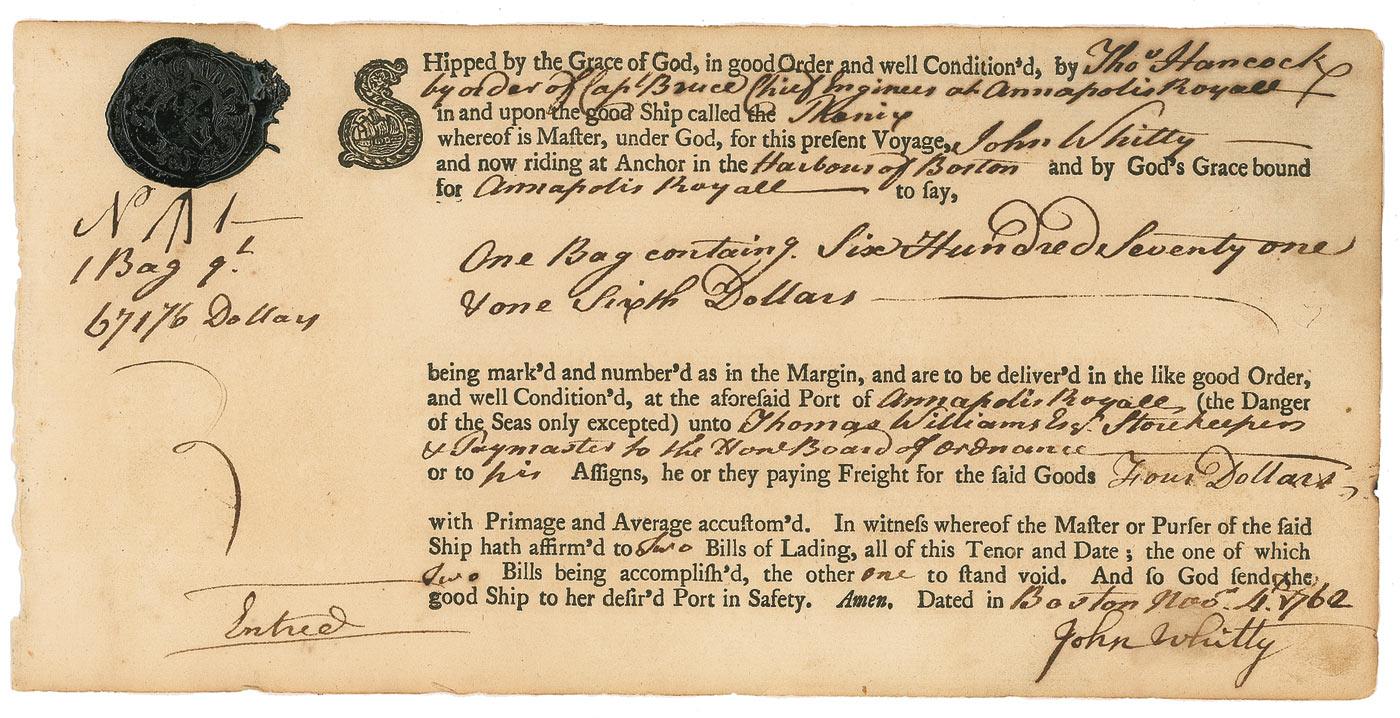 N 1
1 Bag qt
671 1/6 Dollars
SHipped by the Grace of God, in good Order and well Condition'd, by Thos Hancock
by order of Capt Bruce Chief Engineer at Annapolis Royall
in and upon the good Ship called the Phenix
whereof is Maſter, under God, for this preſent Voyage, John Whitty
and now riding at Anchor in the Harbour of Boston and by God's Grace bound
for Annapolis Royall to ſay,
One Bag containg. Six Hundred Seventy one
& one Sixth Dollars
being mark'd and number'd as in the Margin, and are to be deliver'd in the like good Order,
and well Condition'd, at the aforeſaid Port of Annapolis Royall (the Danger
of the Seas only excepted) unto Thomas Williams Esqr. Storekeeper
& Paymaster to the Hone Board of Ordnance
or to his Aſſigns, he or they paying Freight for the ſaid Goods Four Dollars
with Primage and Average accuſtom'd. In witneſs whereof the Maſter or Purſer of the ſaid
Ship hath affirm'd to two Bills of Lading, all of this Tenor and Date ; the one of which
two Bills being accompliſh'd, the other one to ſtand void. And ſo God ſend the
good Ship to her deſir'd Port in Safety. Amen. Dated in Boston Novr. 4th 1762
Entred
John Whitty